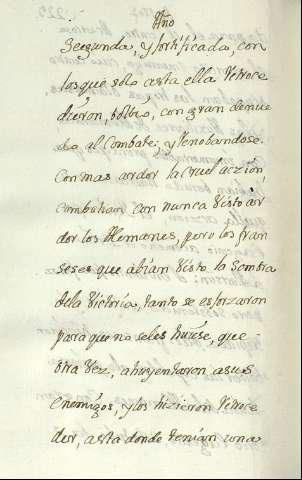 Año
Segunda, y fortificada, con
los que solo asta ella Retroce
dieron, bolbió, con gran denue
do al Combate; y Renobandose
Con mas ardor la Cruel aczión,
combatian con nunca Visto ar
dor los Alemanes, pero los fran
seses que abían Visto la Sombra
dela Victoria, tanto se esforzaron
para que no seles huiese, que
otra Vez, ahuyentaron asus
enemigos, y los hizieron Retroce
der, asta donde tenían una